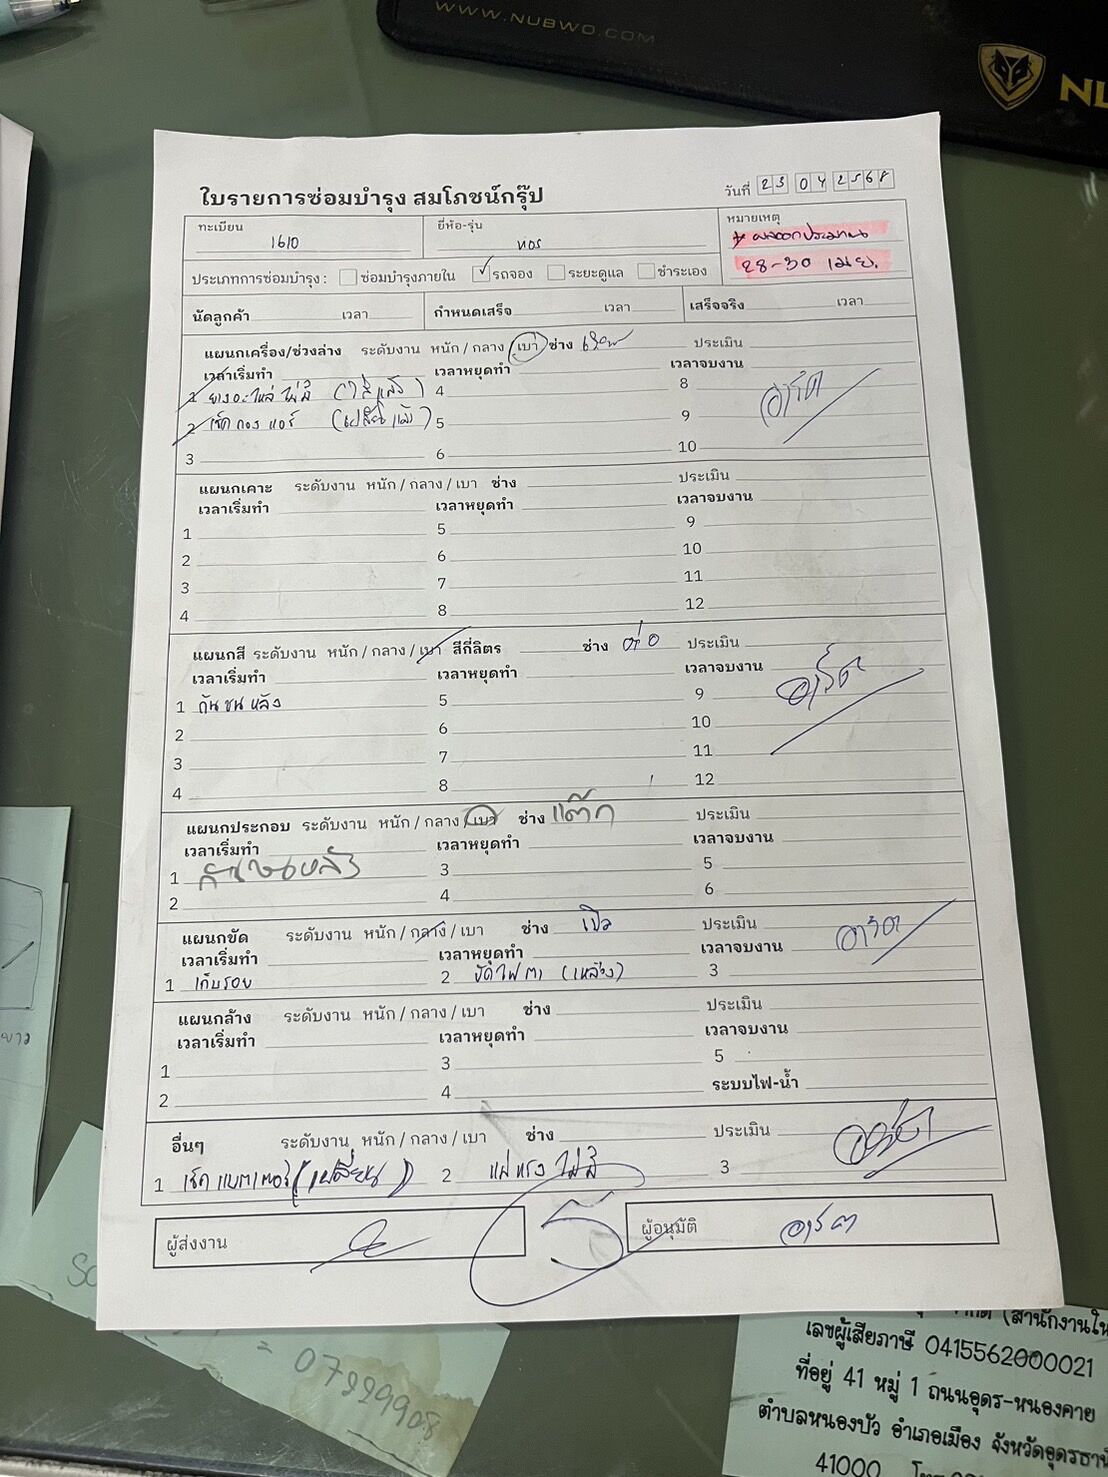 WWW.NUBWO.COM
NU
ใบรายการซ่อมบำรุง สมโภชน์กรุ๊ป
วันที่ 23 04 2568
ทะเบียน 1610
ยี่ห้อ-รุ่น
หมายเหตุ
28-30 เมย.
ประเภทการซ่อมบำรุง : ซ่อมบำรุงภายใน รถจอง ระยะดูแล ชำระเอง
นัดลูกค้า เวลา กำหนดเสร็จ เวลา เสร็จจริง เวลา
แผนกเครื่อง/ช่วงล่าง ระดับงาน หนัก / กลาง / เบา ช่าง ประเมิน
เวลาเริ่มทำ เวลาหยุดทำ เวลาจบงาน
1 ยางอะไหล่ ไม่มี (ใส่แล้ว) 4 8 อาร์ต
2 เช็ค กอง แอร์ (เปลี่ยนแล้ว) 5 9
3 6 10
แผนกเคาะ ระดับงาน หนัก / กลาง / เบา ช่าง ประเมิน
เวลาเริ่มทำ เวลาหยุดทำ เวลาจบงาน
1 5 9
2 6 10
3 7 11
4 8 12
แผนกสี ระดับงาน หนัก / กลาง / เบา สีกี่ลิตร ช่าง ต่อ ประเมิน
เวลาเริ่มทำ เวลาหยุดทำ เวลาจบงาน
1 กันชนหลัง 5 9 อาร์ต
2 6 10
3 7 11
4 8 12
แผนกประกอบ ระดับงาน หนัก / กลาง / เบา ช่าง แต๊ก ประเมิน
เวลาเริ่มทำ เวลาหยุดทำ เวลาจบงาน
1 กันชนหลัง 3 5
2 4 6
แผนกขัด ระดับงาน หนัก / กลาง / เบา ช่าง เปิ้ล ประเมิน
เวลาเริ่มทำ เวลาหยุดทำ เวลาจบงาน อาร์ต
1 เก็บรอย 2 ขัดไฟตา (เหลือง) 3
แผนกล้าง ระดับงาน หนัก / กลาง / เบา ช่าง ประเมิน
เวลาเริ่มทำ เวลาหยุดทำ เวลาจบงาน
1 3 5
2 4 ระบบไฟ-น้ำ
อื่นๆ ระดับงาน หนัก / กลาง / เบา ช่าง ประเมิน อาร์ต
1 เช็คแบตเตอรี่ (เปลี่ยน) 2 แม่แรง ไม่มี 3
ผู้ส่งงาน
ผู้อนุมัติ อาร์ต
= 07999908
(สำนักงานให
เลขผู้เสียภาษี 0415562000021
ที่อยู่ 41 หมู่ 1 ถนนอุดร-หนองคาย
ตำบลหนองบัว อำเภอเมือง จังหวัดอุดรธานี
41000